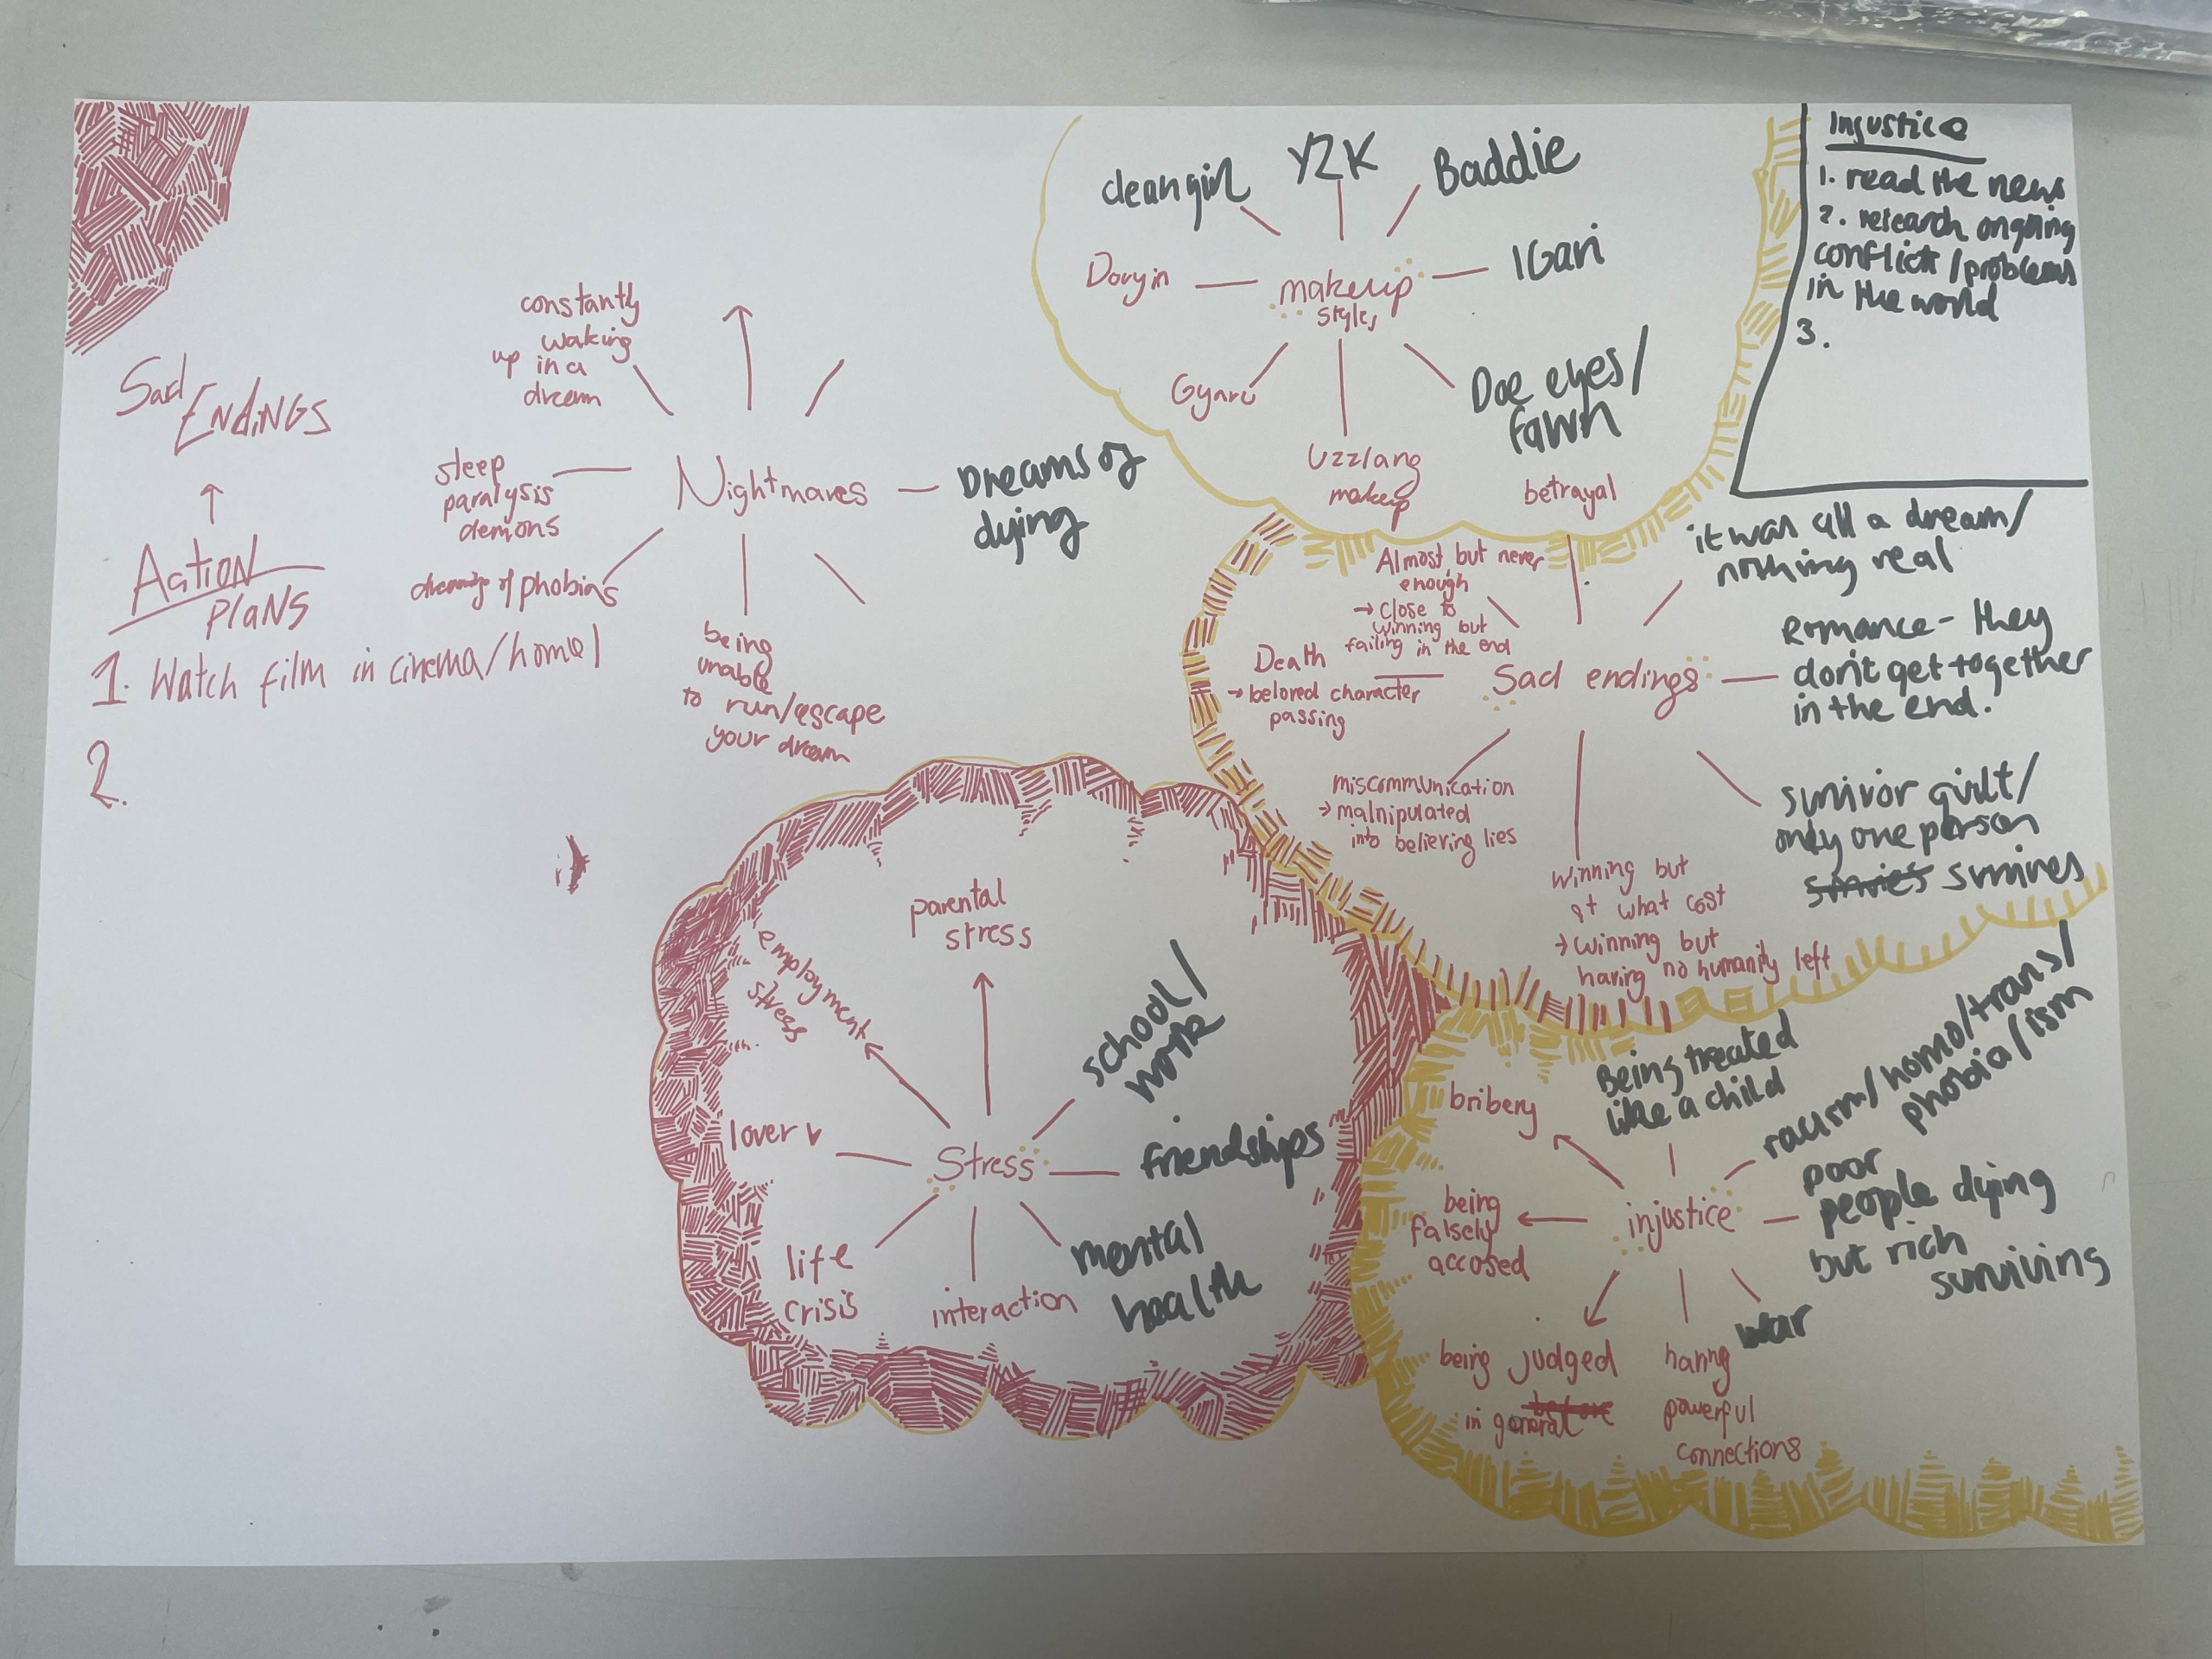 Sad
ENDINGS
Action
PLANS
1. Watch film in cinema/home
2.
constantly
waking
up in a
dream
sleep
paralysis
demons
dreaming of phobias
Nightmares
Dreams of
dying
being
unable
to run/escape
your dream
clean girl
Y2K
Baddie
Douyin
makeup
styles
IGari
Gyaru
Uzzlang
makeup
Doe eyes/
fawn
Injustice
1. read the news
2. research ongoing
conflict/problems
in the world
3.
betrayal
it was all a dream/
nothing real
Almost but never
enough
→ close to
winning but
failing in the end
Death
→ beloved character
passing
Sad endings
Romance - they
don't get together
in the end.
miscommunication
→ malnipulated
into believing lies
winning but
at what cost
→ winning but
having no humanity left
survivor guilt/
only one person
survives
parental
stress
employment
stress
school/
work
lover
Stress
friendships
life
crisis
interaction
mental
health
bribery
Being treated
like a child
racism/homo/trans/
phobia/ism
being
falsely
accosed
injustice
poor
people dying
but rich
surviving
being judged
in general
having
powerful
connections
war